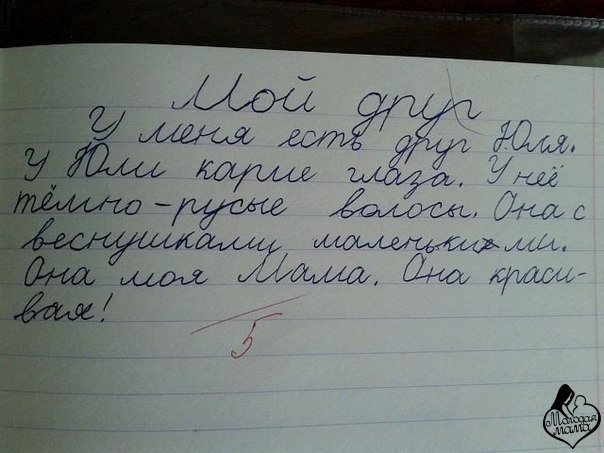 Мой друг
У меня есть друг Юля.
У Юли карие глаза. У неё
тёмно-русые волосы. Она с
веснушками маленькими.
Она моя Мама. Она краси-
вая!
5
Молодая
мама